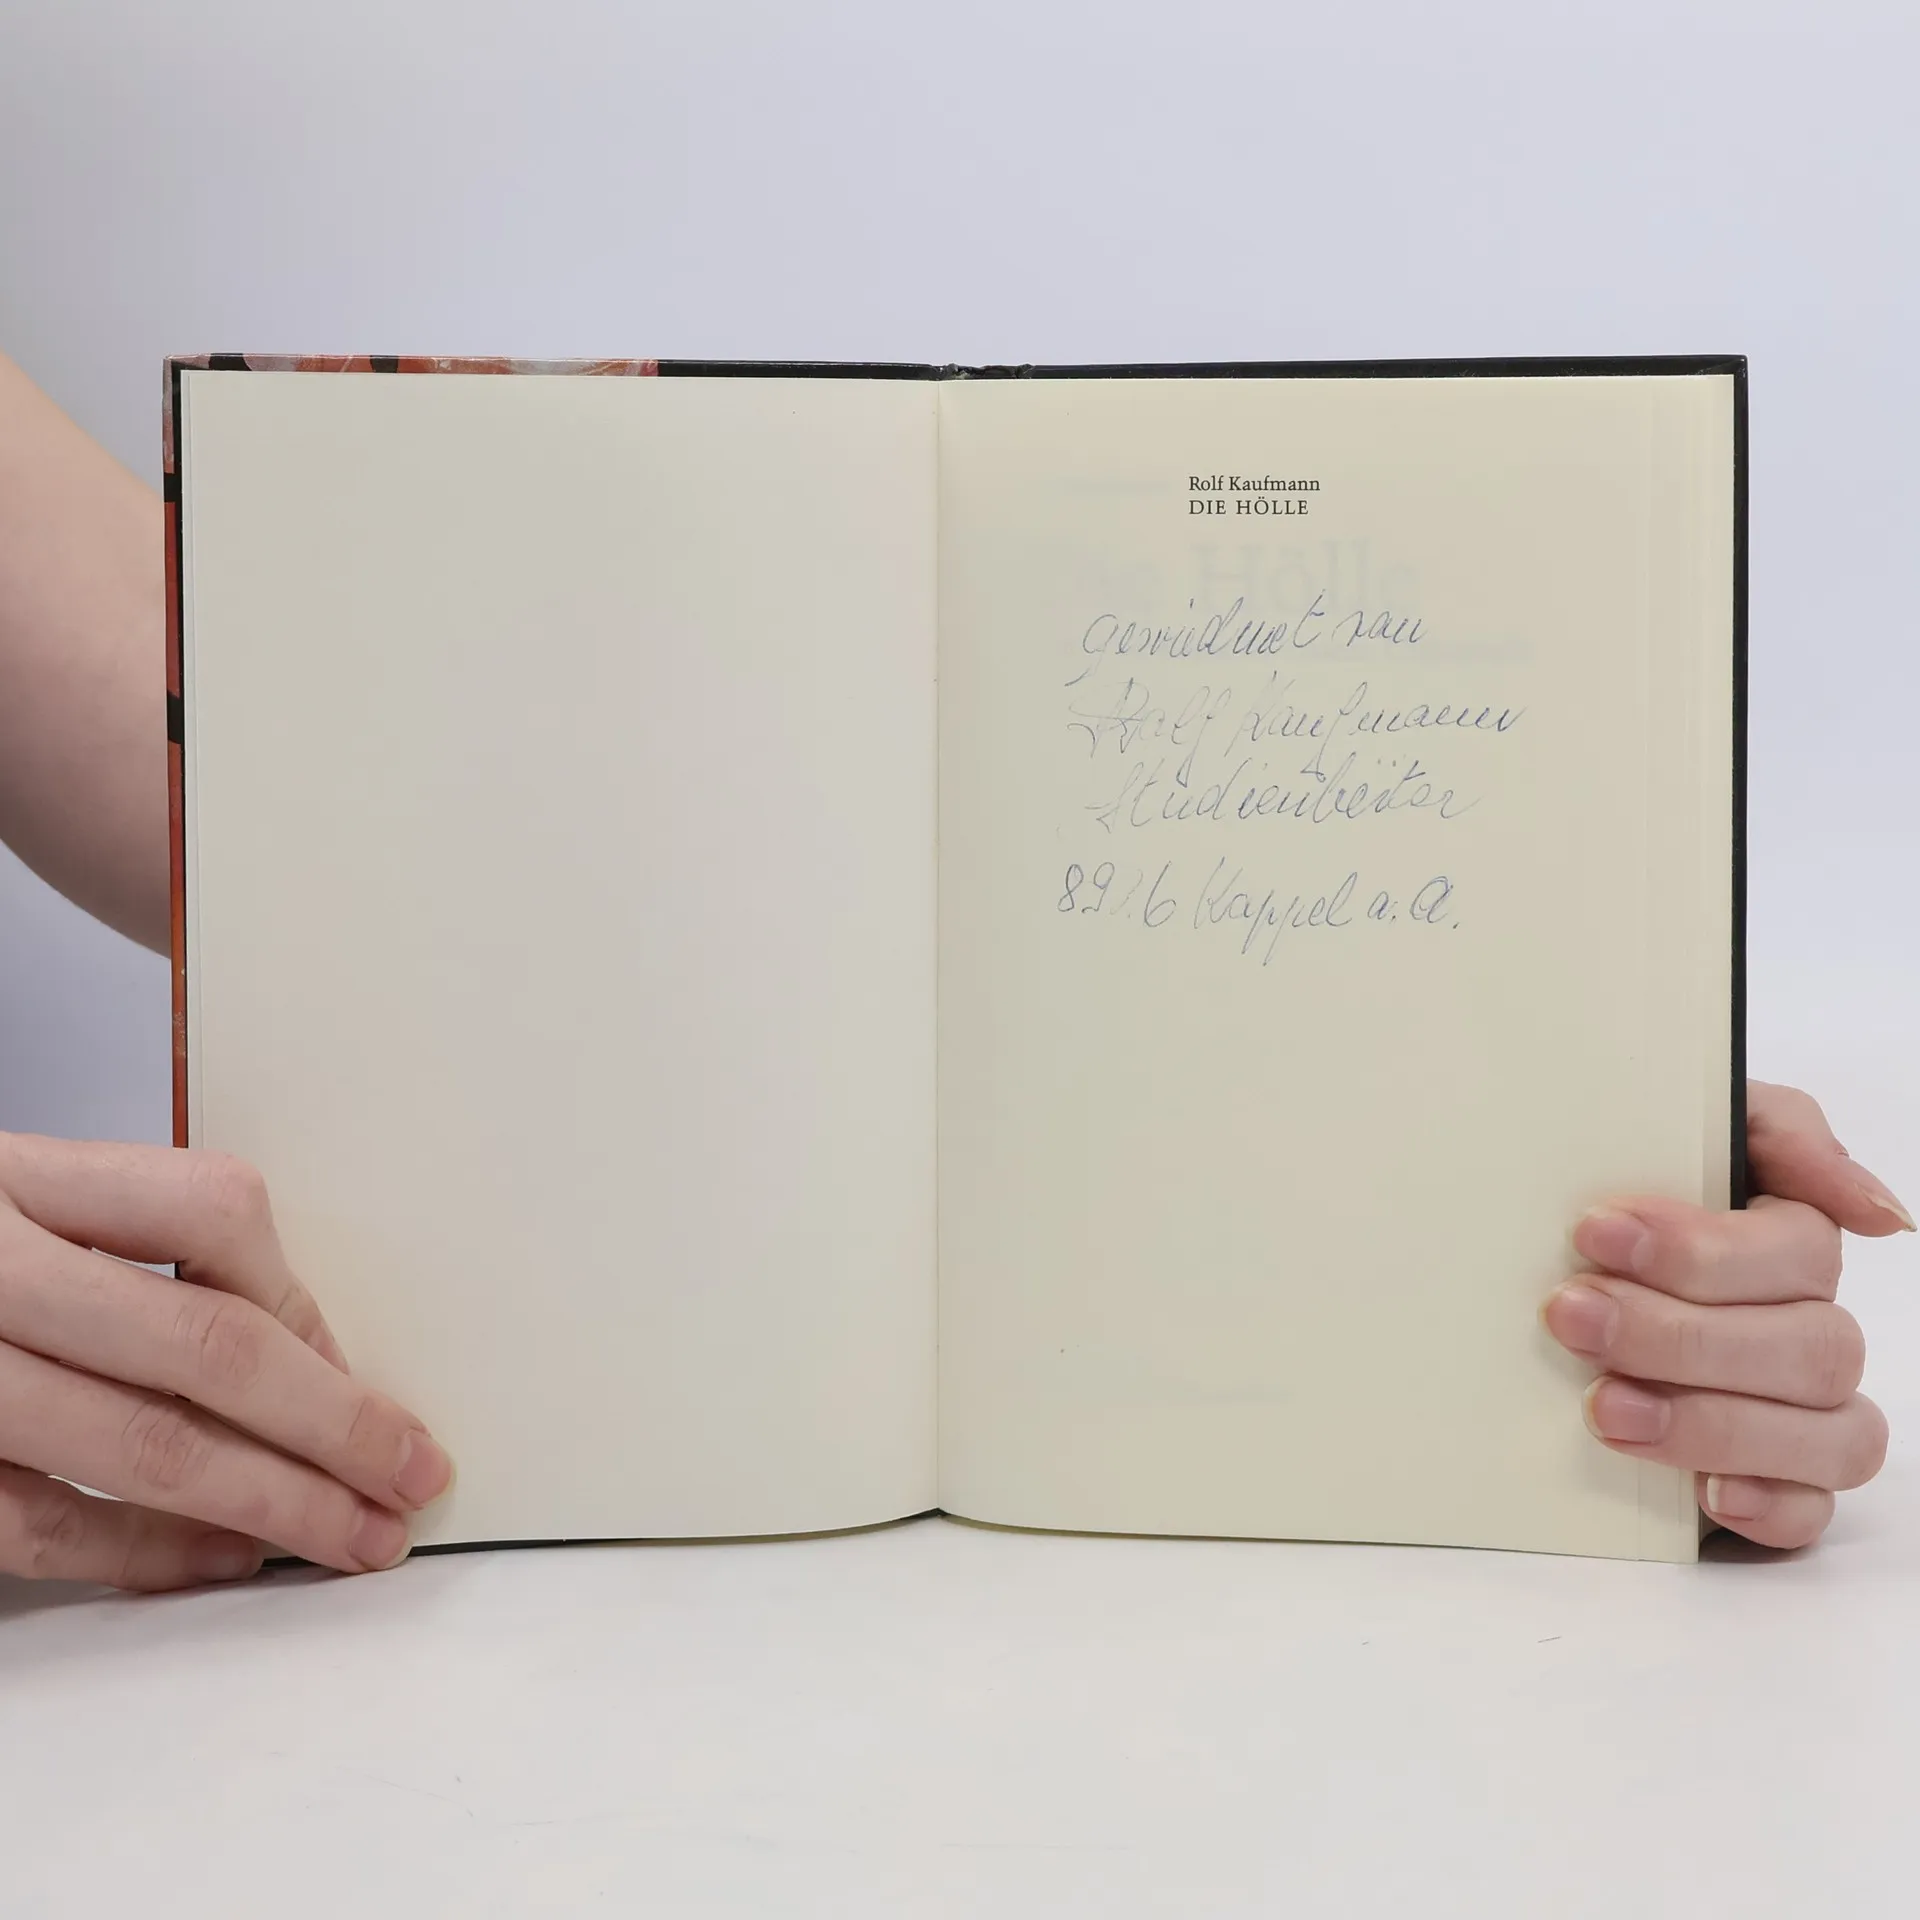 Rolf Kaufmann
DIE HÖLLE
Hölle
gewidmet von
Rolf Kaufmann
8926 Kappel a. A.